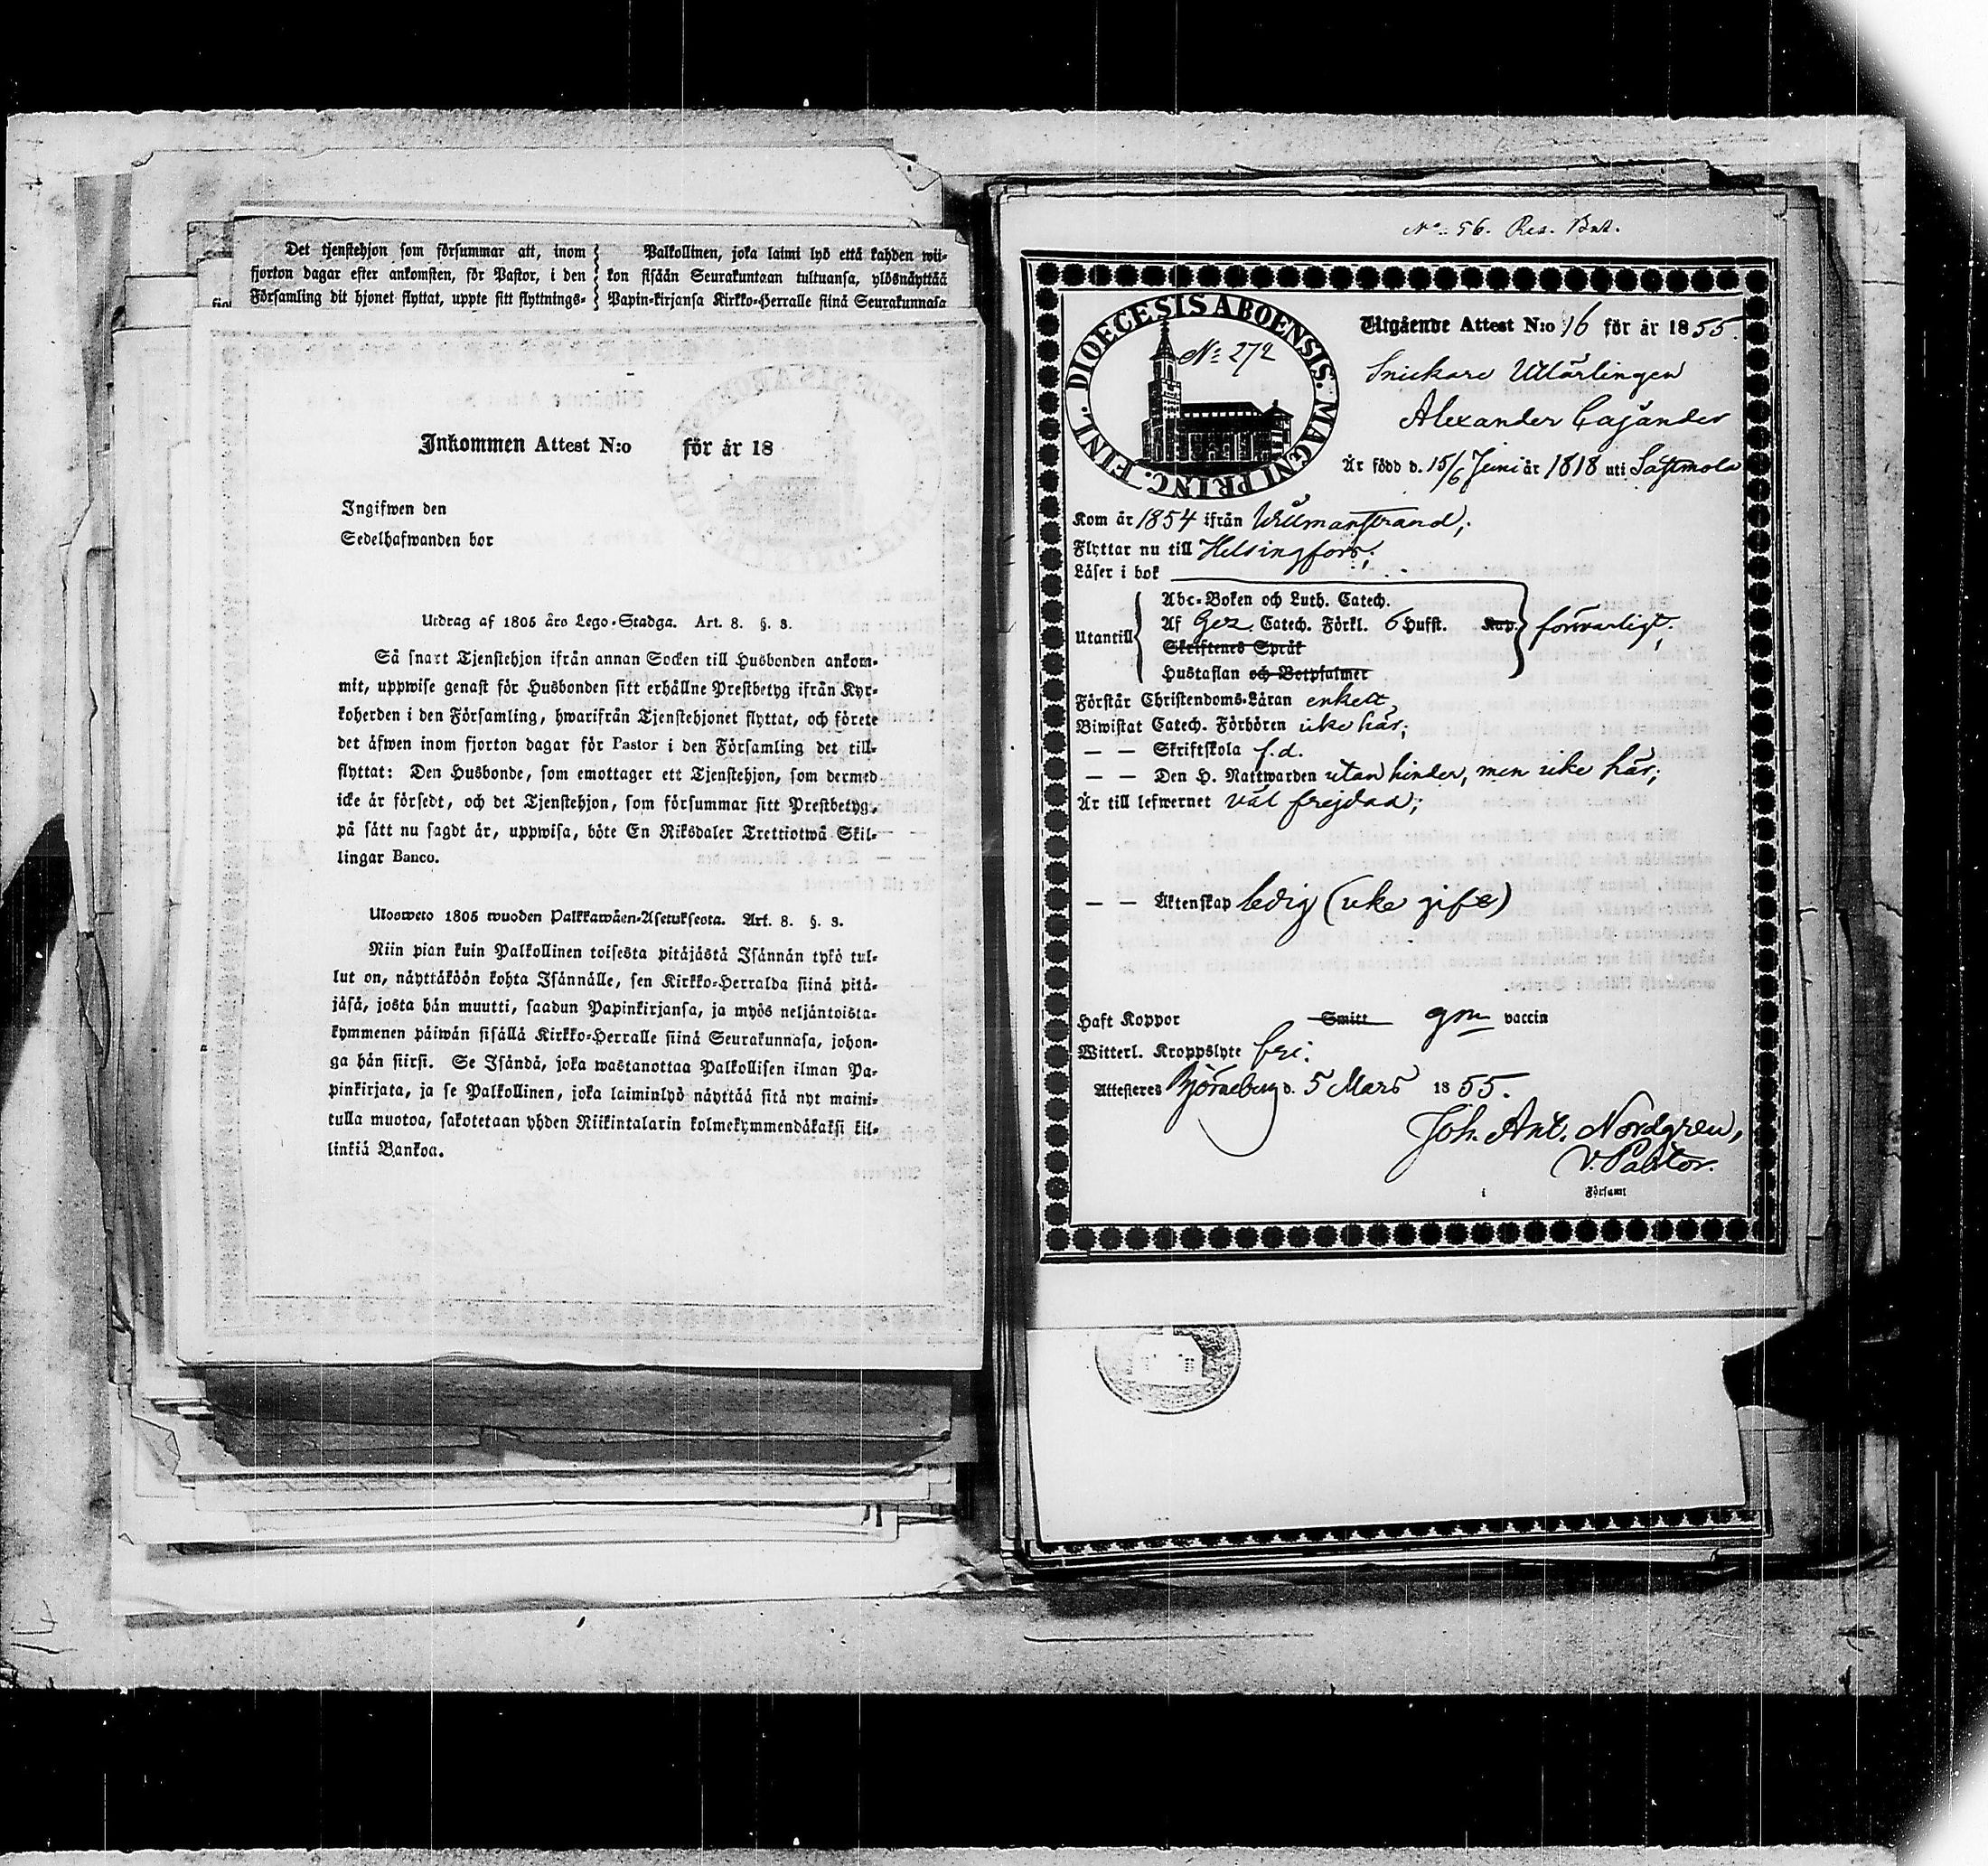 Det tjenstehjon som försummar att, inom
fjorton dagar efter ankomsten, för Pastor, i den
Församling dit hjonet flyttat, uppte sitt flyttnings-
Palkollinen, joka laimi lyö että kahden wii-
kon sisään Seurakuntaan tultuansa, ylösnäyttää
Papin-kirjansa Kirkko-Herralle siinä Seurakunnasa
Inkommen Attest N:o för år 18
Ingifwen den
Sedelhafwanden bor
Utdrag af 1805 års Lego-Stadga. Art. 8. §. 3.
Så snart Tjenstehjon ifrån annan Socken till Husbonden ankom-
mit, uppwise genast för Husbonden sitt erhållne Prestbetyg ifrån Kyr-
koherden i den Församling, hwarifrån Tjenstehjonet flyttat, och förete
det äfwen inom fjorton dagar för Pastor i den Församling det till-
flyttat: Den Husbonde, som emottager ett Tjenstehjon, som dermed
icke är försedt, och det Tjenstehjon, som försummar sitt Prestbetyg,
på sätt nu sagdt är, uppwisa, böte En Riksdaler Trettiotwå Skil-
lingar Banco.
Ulosweto 1805 wuoden Palkkawäen-Asetuksesta. Art. 8. §. 3.
Niin pian kuin Palkollinen toisesta pitäjästä Isännän tykö tul-
lut on, näyttäköön kohta Isännälle, sen Kirkko-Herralda siinä pitä-
jäsä, josta hän muutti, saadun Papinkirjansa, ja myös neljäntoista-
kymmenen päiwän sisällä Kirkko-Herralle siinä Seurakunnasa, johon-
ga hän siirsi. Se Isändä, joka wastanottaa Palkollisen ilman Pa-
pinkirjata, ja se Palkollinen, joka laiminlyö näyttää sitä nyt maini-
tulla muotoa, sakotetaan yhden Riikintalarin kolmekymmendäkaksi kil-
linkiä Bankoa.
No. 56. Res. Bnt.
DIOECESIS ABOENSIS. MAGNI PRINC. FINL.
No 272
Utgående Attest N:o 16 för år 1855.
Snickare Utlärlingen
Alexander Cajander
Är född d. 15/6 Juni år 1818 uti Sastmola
Kom år 1854 ifrån Willmanstrand;
Flyttar nu till Helsingfors;
Läser i bok
Utantill
Abc-Boken och Luth. Catech.
Af Gez. Catech. Förkl. 6 Hufst. Kap.
Skriftenes Språk
Hustaflan och Botpsalmer
försvarligt;
Förstår Christendoms-Läran enkelt,
Biwistat Catech. Förhören icke här;
— — Skriftskola f.d.
— — Den H. Nattwarden utan hinder, men icke här;
Är till lefwernet väl frejdad;
— — Äktenskap ledig (icke gift)
Haft Koppor Smitt gm vaccin
Witterl. Kroppslyte fri.
Attesteres Björneborg d. 5 Mars 1855.
Joh. Ant. Nordgren,
V. Pastor.
i Församl